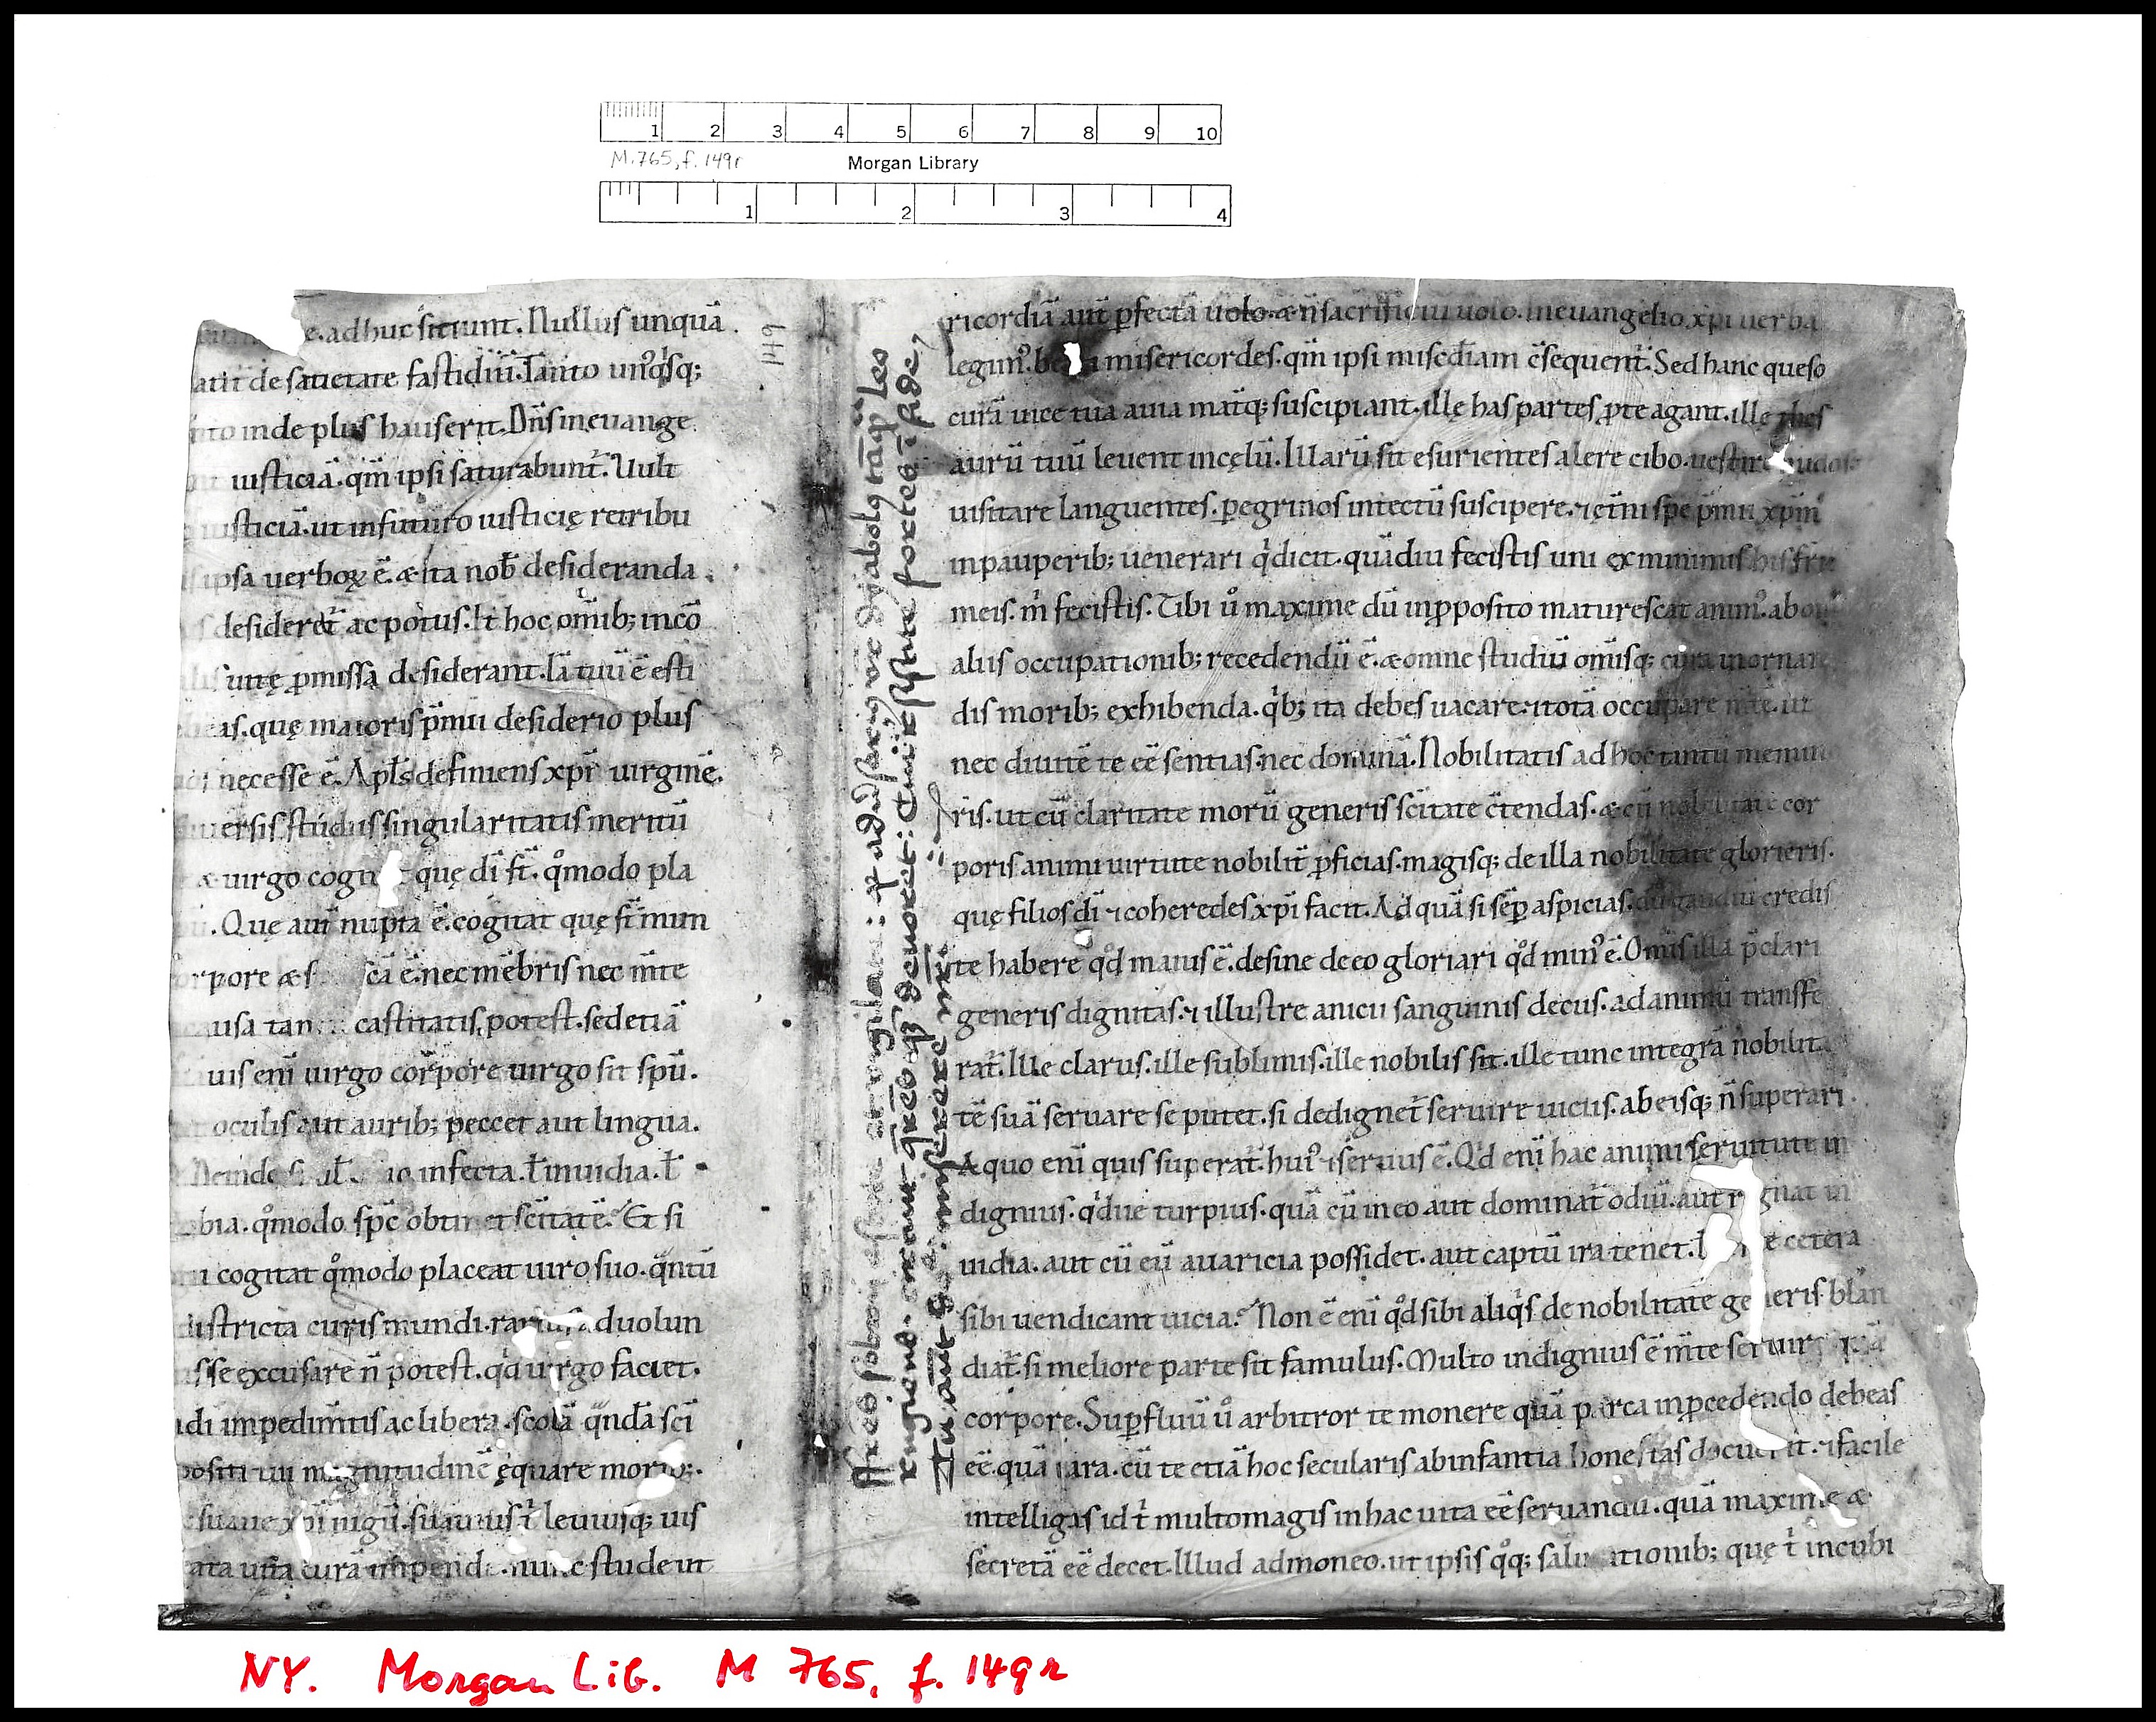 1 2 3 4 5 6 7 8 9 10
M.765, f. 149r
Morgan Library
1 2 3 4
e. adhuc sitiunt. Nullus unquā.
de satietate fastidiū. Tanto unꝰqͥsq;
inde plus hauserit. Dn̄s in euange
iusticiā. qm̄ ipsi saturabunt̄. Uult
iusticiā. ut in futuro iusticię retribu
ipsa uerboꝝ ē. & ita nob̄ desideranda.
desideret̄ ac potus. Et hoc om̄ib; in cō
uitę ꝓmissa desiderant. Iā tuū ē esti
as. quę maioris p̄mii desiderio plus
necesse ē. Apl̄s definiens xp̄i uirginē.
ersis studiis singularitatis meritū
& uirgo cogit quę dī st̄. qͦmodo pla
. Quę aut̄ nupta ē. cogitat quę st̄ mun
rpore & s cā ē. nec mēbris nec m̄te
usa tan castitatis potest. sed etiā
uis enī uirgo corpore uirgo sit sp̄u.
oculis aut aurib; peccet aut lingua.
Deinde infecta. ł inuidia. ł
bia. qͦmodo sp̄c obtinet sc̄itatē. Et si
cogitat qͦmodo placeat uiro suo. qͣntū
istricta curis mundi. ad uolun
sse excusare n̄ potest. qͥd uirgo faciet.
di impedim̄tis ac libera. scolā qͣndā sc̄i
ositi ui magnitudinē equare morib;.
suaue xp̄i iugū. suauius ł leuiusq; uis
uīta curā impend nunc stude ut
149
ricordiā aut ꝑfectā uolo. & n̄ sacrificiū uolo. In euangelio xp̄i uerba
legimꝰ. be misericordes. qm̄ ipsi misc̄diam c̄sequent̄. Sed hanc queso
curā uice tua auia mat̄q; suscipiant. ille has partes ꝓ te agant. ille thes
aurū tuū leuent in cęlū. Illarū sit esurientes alere cibo. uestire nudos
uisitare languentes. ꝑegrinos in tectū suscipere. & spe p̄mii xp̄m
in pauperib; uenerari qͥ dicit. quādiu fecistis uni ex minimis his fr̄ib;
meis. m̄ fecistis. Tibi uͦ maxime dū in ꝓposito maturescat animꝰ. ab om̄ib;
aliis occupationib; recedendū ē. & omne studiū om̄isq; cura in ornan
dis morib; exhibenda. qͥb; ita debes uacare. & totā occupare m̄te. ut
nec diuitē te ēē sentias. nec dominā. Nobilitatis ad hoc tantū memine
ris. ut cū claritate morū generis sc̄itate c̄tendas. & cū nobilitate cor
poris animi uirtute nobilit̄ ꝓficias. magisq; de illa nobilitate glorieris.
quę filios dī & coheredes xp̄i facit. Ad quā si sēꝑ aspicias. credis
te habere qͦd maius ē. desine de eo gloriari qͦd minꝰ ē. Om̄is illa p̄clari
generis dignitas. & illustre anicii sanguinis decus. ad animū transfe
rat̄. Ille clarus. ille sublimis. ille nobilis sit. ille tunc integrā nobilita
tē suā seruare se putet. si dedignet̄ seruire uiciis. ab eisq; n̄ superari.
A quo enī quis superat̄. huiꝰ & seruus ē. Qͥd enī hac animi seruitute in
dignius. qͥdue turpius. quā cū in eo aut dominat̄ odiū. aut regnat in
uidia. aut cū eū auaricia possidet. aut captū ira tenet. cetera
sibi uendicant uicia. Non ē enī qͦd sibi aliqͥs de nobilitate generis blan
diat̄. si meliore parte sit famulus. Multo indignius ē m̄te seruire quā
corpore. Suꝑfluū uͦ arbitror te monere quā parca in ꝓcedendo debeas
ēē. quā rara. cū te etiā hoc secularis ab infantia honestas docuerit. & facile
intelligas id ł multo magis in hac uita ēē seruandū. quā maxime &
secretā ēē decet. Illud admoneo. ut ipsis qͦq; salutationib; quę ł in cubi
rugiens. circuit. quęrēs quē deuoret: Cui resistite fortes ī fide,
Tu aut̄ dn̄e miserere nr̄i.
NY. Morgan Lib. M 765, f. 149r